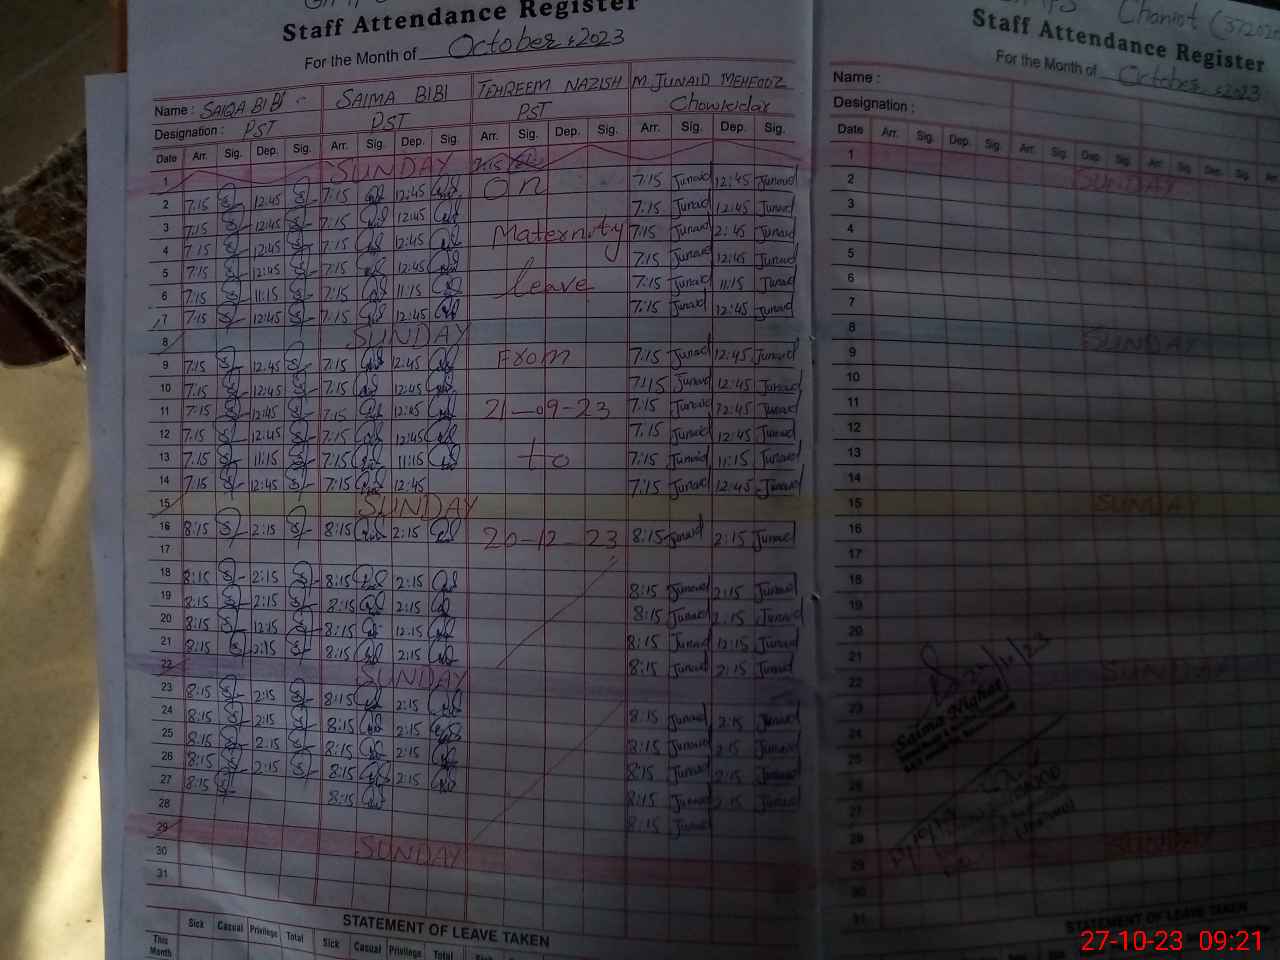 Staff Attendance Register
For the Month of October, 2023
Name : SAIQA BIBI SAIMA BIBI TEHREEM NAZISH M. JUNAID MEHFOOZ
Designation : PST PST PST Chowkidar
Date Arr. Sig. Dep. Sig. Arr. Sig. Dep. Sig. Arr. Sig. Dep. Sig. Arr. Sig. Dep. Sig.
1 SUNDAY 7:15
2 7:15 12:45 7:15 12:45 on 7:15 Junaid 12:45 Junaid
3 7:15 12:45 7:15 12:45 7:15 Junaid 12:45 Junaid
4 7:15 12:45 7:15 12:45 Maternity 7:15 Junaid 12:45 Junaid
5 7:15 12:45 7:15 12:45 7:15 Junaid 12:45 Junaid
6 7:15 11:15 7:15 11:15 leave 7:15 Junaid 11:15 Junaid
7 7:15 12:45 7:15 12:45 7:15 Junaid 12:45 Junaid
8 SUNDAY
9 7:15 12:45 7:15 12:45 From 7:15 Junaid 12:45 Junaid
10 7:15 12:45 7:15 12:45 7:15 Junaid 12:45 Junaid
11 7:15 12:45 7:15 12:45 21-09-23 7:15 Junaid 12:45 Junaid
12 7:15 12:45 7:15 12:45 7:15 Junaid 12:45 Junaid
13 7:15 11:15 7:15 11:15 to 7:15 Junaid 11:15 Junaid
14 7:15 12:45 7:15 12:45 7:15 Junaid 12:45 Junaid
15 SUNDAY
16 8:15 2:15 8:15 2:15 20-12-23 8:15 Junaid 2:15 Junaid
17
18 8:15 2:15 8:15 2:15 8:15 Junaid 2:15 Junaid
19 8:15 2:15 8:15 2:15 8:15 Junaid 2:15 Junaid
20 8:15 12:15 8:15 12:15 8:15 Junaid 12:15 Junaid
21 8:15 2:15 8:15 2:15 8:15 Junaid 2:15 Junaid
22 SUNDAY
23 8:15 2:15 8:15 2:15 8:15 Junaid 2:15 Junaid
24 8:15 2:15 8:15 2:15 8:15 Junaid 2:15 Junaid
25 8:15 2:15 8:15 2:15 8:15 Junaid 2:15 Junaid
26 8:15 2:15 8:15 2:15 8:15 Junaid 2:15 Junaid
27 8:15 8:15 8:15 Junaid
28
29 SUNDAY
30
31
STATEMENT OF LEAVE TAKEN
Sick Casual Privilege Total Sick Casual Privilege Total
This Month
Chaniot
Staff Attendance Register
For the Month of October, 2023
Name :
Designation :
Date Arr. Sig. Dep. Sig. Arr. Sig. Dep. Sig. Arr. Sig. Dep. Sig.
1
2 SUNDAY
3
4
5
6
7
8 SUNDAY
9
10
11
12
13
14
15 SUNDAY
16
17
18
19
20
21
22 SUNDAY
23
24
25
26
27
28
29 SUNDAY
30
31
Saima Nighat
STATEMENT OF LEAVE TAKEN
27-10-23 09:21